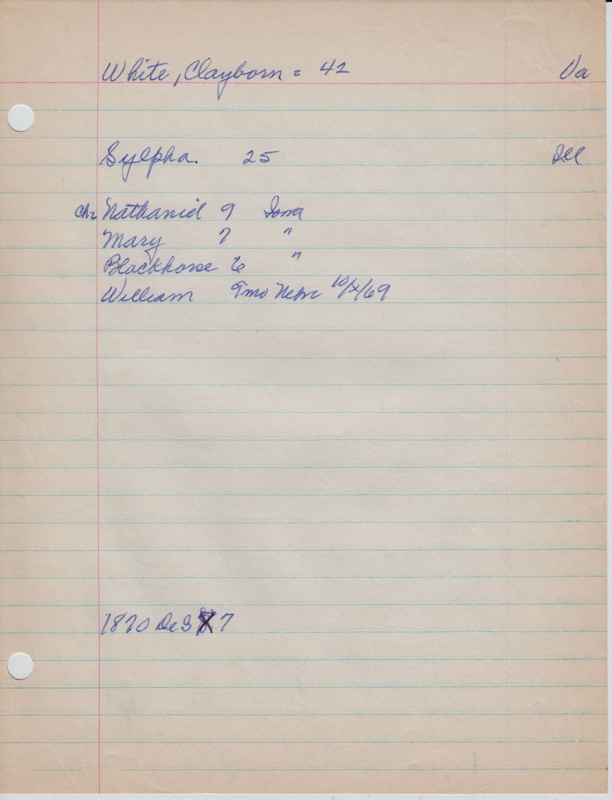 White, Clayborn = 42 Va
Sylpha. 25 Ill
Ch: Nathaniel 9 Iowa
Mary 7 "
Blackhorse 6 "
William 9mo Nebr 10/X/69
1870 DeS 7